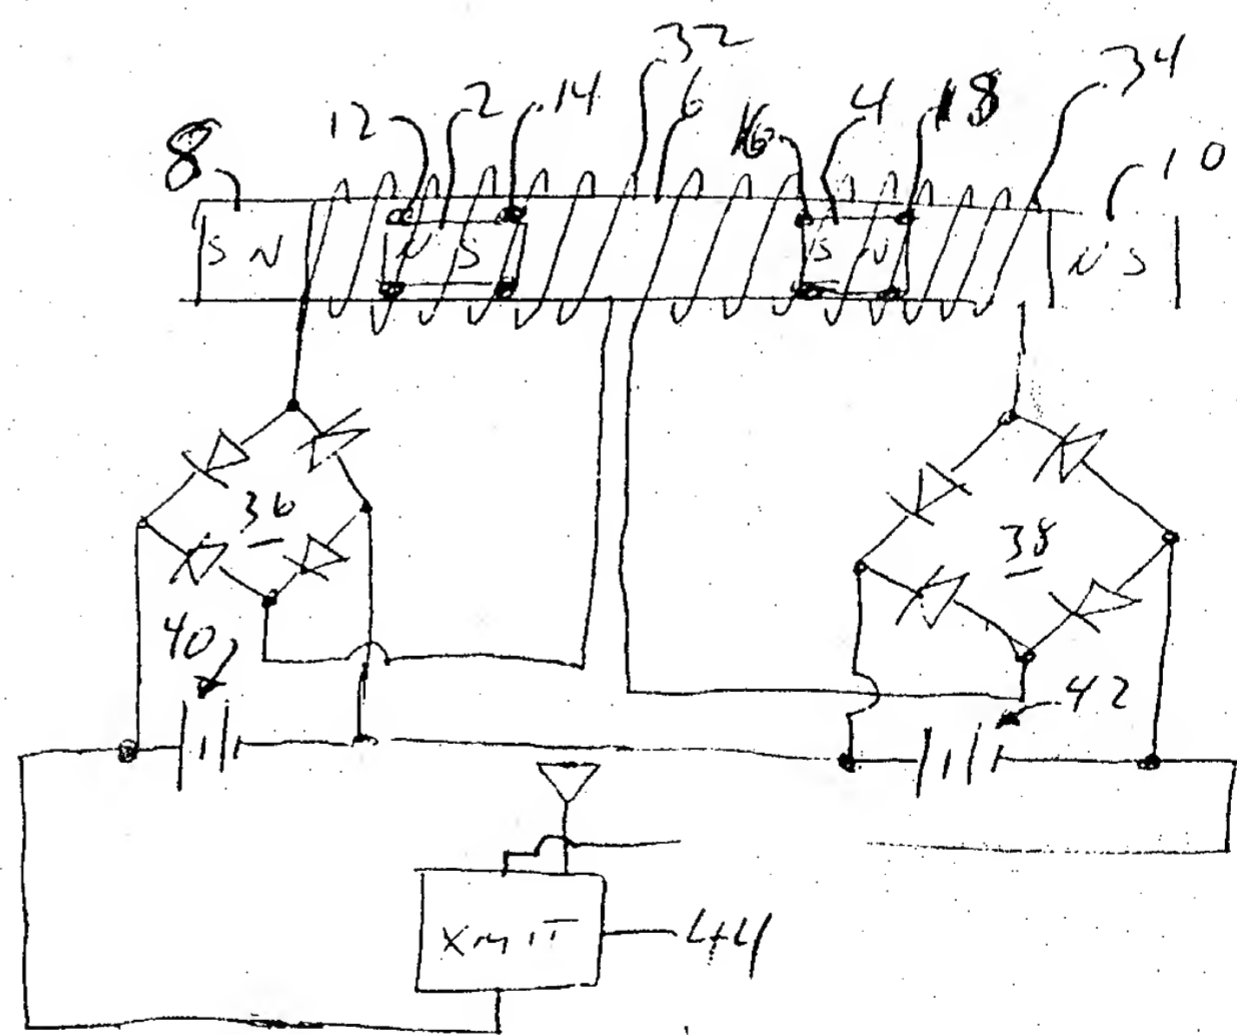 32
34
12 2 14 6 16 4 18
8 10
S N N S S N N S
36
38
40
42
XMIT 44